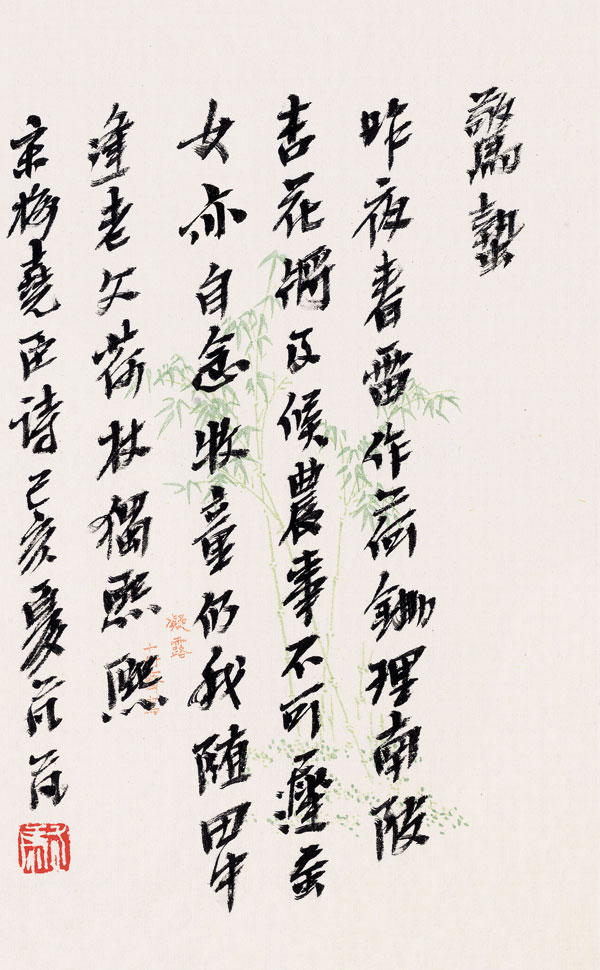 驚蟄
昨夜春雷作荷鋤理南陂
杏花将及候農事不可遲蚕
女亦自念牧童仍我随田中
逢老父荷杖獨熙熙
宋梅堯臣诗己亥夏
凝露